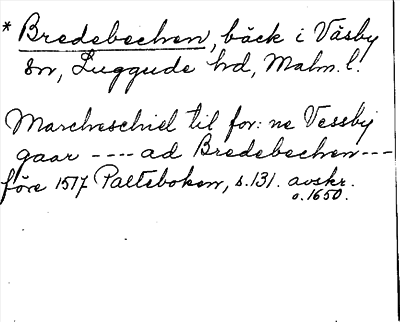 * Bredebechen, bäck i Väsby
sn, Luggude hd, Malm. l.
Marcheschiel til for: ne Vessby
gaar ---- ad Bredebechen ---
före 1517 Palteboken, s. 131. avskr.
o. 1650.